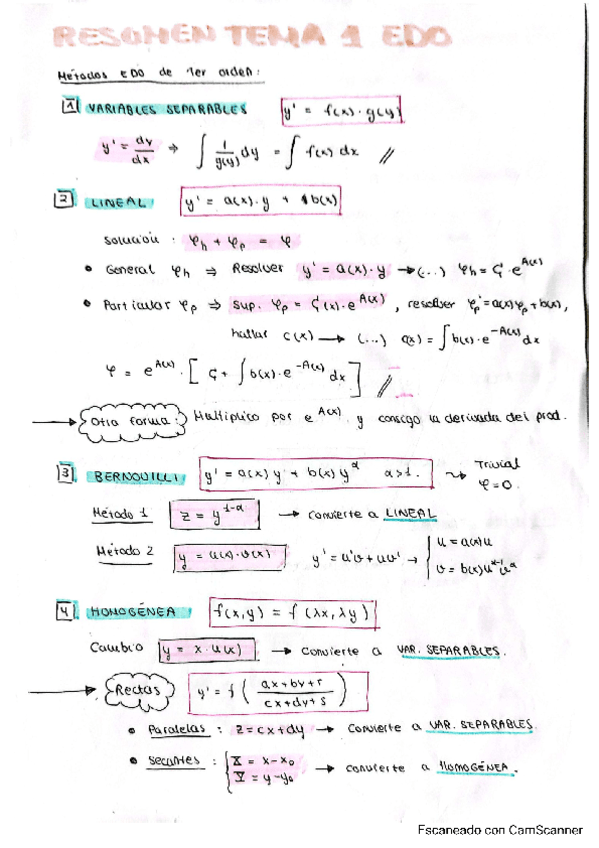 RESUMEN TEMA 1 EDO
Métodos EDO de 1er orden:
1 VARIABLES SEPARABLES y' = f(x)·g(y)
y' = dy/dx ⇒ ∫ 1/g(y) dy = ∫ f(x) dx //
2 LINEAL: y' = a(x)·y + b(x)
solución: φh + φp = φ
• General φh ⇒ Resolver y' = a(x)·y → (...) φh = C·e^A(x)
• Particular φp ⇒ sup. φp = C(x)·e^A(x), resolver φp' = a(x)φp + b(x),
hallar c(x) → (...) c(x) = ∫ b(x)·e^-A(x) dx
φ = e^A(x)·[C + ∫ b(x)·e^-A(x) dx] //
→ Otra forma: Multiplico por e^A(x) y consigo la derivada del prod.
3 BERNOUILLI y' = a(x)y + b(x)y^α α>1. ⇝ Trivial
φ=0.
Método 1 z = y^1-α → convierte a LINEAL
Método 2 y = u(x)·v(x) y' = u'v + uv' → { u = a(x)u
v = b(x)u^α-1 v^α
4 HOMOGÉNEA: f(x,y) = f(λx, λy)
Cambio y = x·u(x) → convierte a VAR. SEPARABLES.
→ Rectas y' = f( ax+by+r / cx+dy+s )
• Paralelas: z=cx+dy → convierte a VAR. SEPARABLES.
• Secantes: { X = x-x₀
Y = y-y₀ → convierte a HOMOGÉNEA.
Escaneado con CamScanner